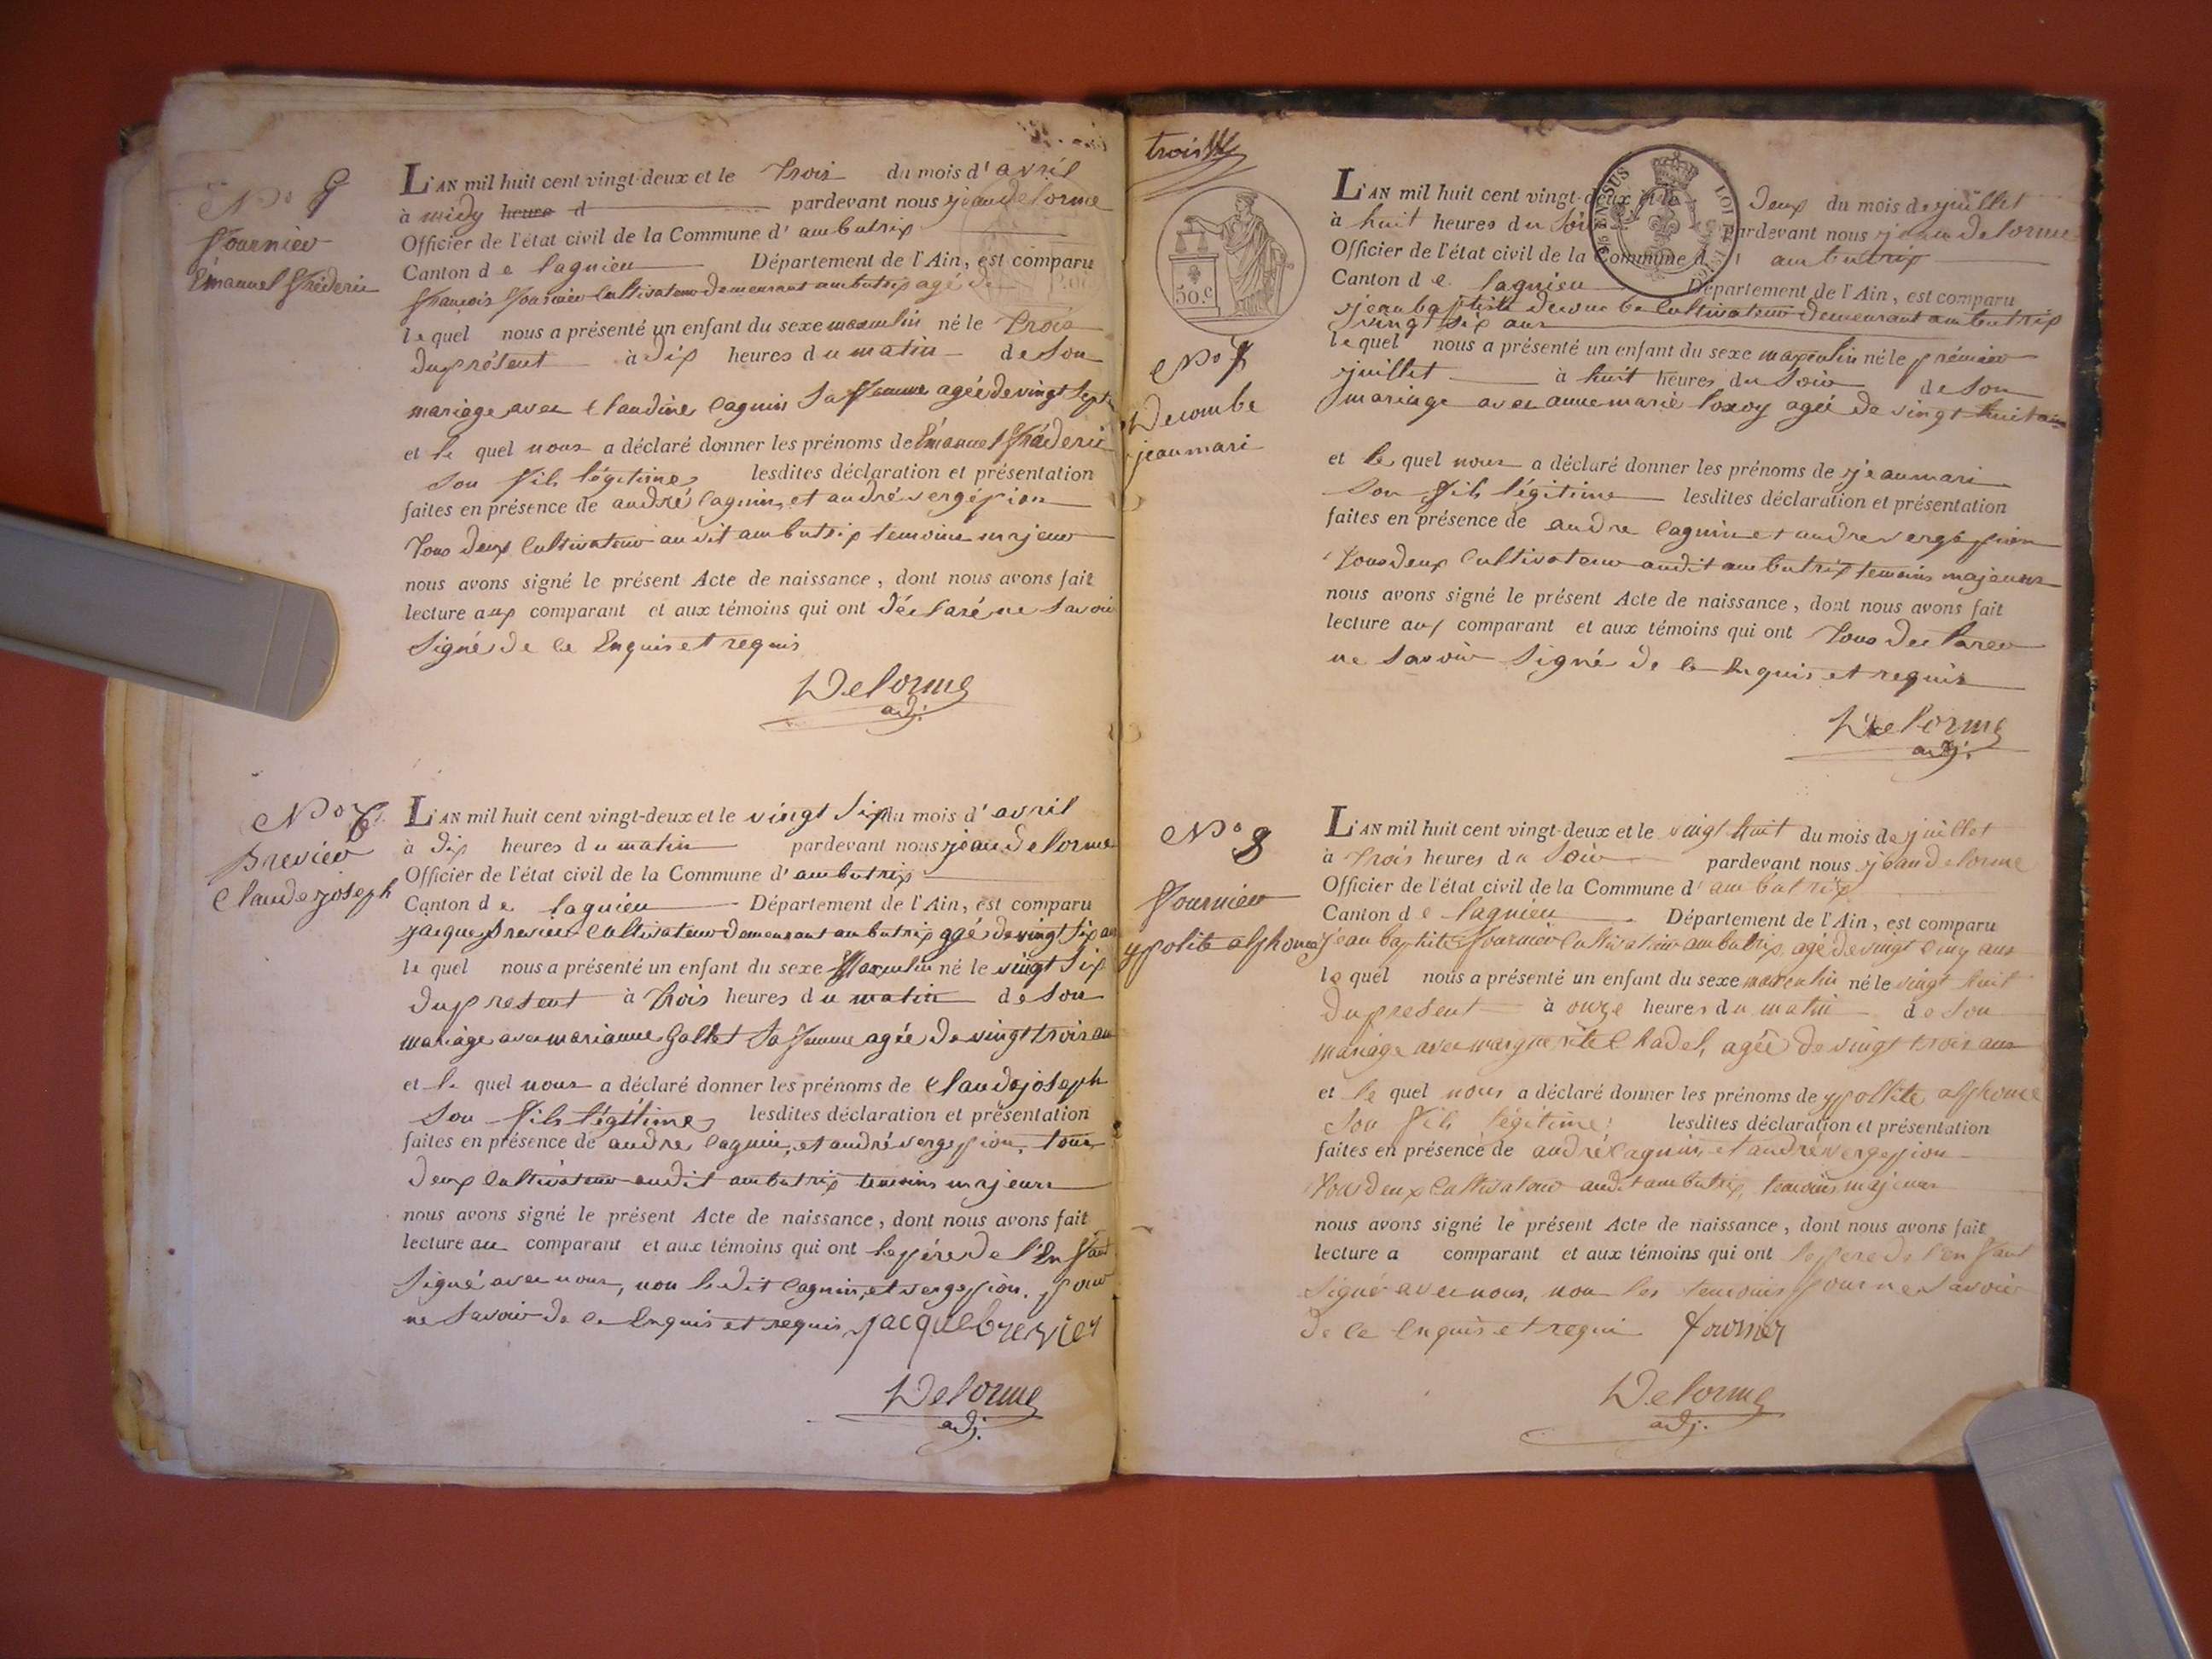 N.o 5
fournier
Emanuel fréderic
L'AN mil huit cent vingt-deux et le trois du mois d'avril
à midy heure d pardevant nous jean delorme
Officier de l'état civil de la Commune d'ambutrix
Canton de lagnieu Département de l'Ain, est comparu
françois fournier Cultivateur demeurant ambutrix agé de
le quel nous a présenté un enfant du sexe masculin né le trois
du présent à dix heures du matin de Son
mariage avec Claudine Cagnin Sa femme agée de vingt Sept
et le quel nous a déclaré donner les prénoms de Emanuel fréderic
Son fils légitime lesdites déclaration et présentation
faites en présence de andré Cagnin, et andré vergépion
tous deux Cultivateur au dit ambutrix temoins majeur
nous avons signé le présent Acte de naissance, dont nous avons fait
lecture aux comparant et aux témoins qui ont déclaré ne Savoir
Signé de ce Enquis et requis
Delorme
adj.
N.o 6
Brevier
Claude joseph
L'AN mil huit cent vingt-deux et le vingt Six du mois d'avril
à dix heures du matin pardevant nous jean delorme
Officier de l'état civil de la Commune d'ambutrix
Canton de lagnieu Département de l'Ain, est comparu
jacque Brevier Cultivateur demeurant ambutrix agé de vingt Six ans
le quel nous a présenté un enfant du sexe Masculin né le vingt Six
du present à trois heures du matin de Son
mariage avec marianne Gallet Sa femme agée de vingt trois ans
et le quel nous a déclaré donner les prénoms de Claude joseph
Son fils légitime lesdites déclaration et présentation
faites en présence de andre Cagnin, et andré vergepion, tous
deux Cultivateur audit ambutrix temoins majeurs
nous avons signé le présent Acte de naissance, dont nous avons fait
lecture au comparant et aux témoins qui ont le père de l'Enfant
Signé avec nous, non le dit Cagnin, et vergepion, pour
ne Savoir de ce Enquis et requis jacque brevier
Delorme
adj.
trois
50.c
N.o 7
Decombe
jean mari
L'AN mil huit cent vingt-deux et le deux du mois de juillet
à huit heures du Soir pardevant nous jean delorme
Officier de l'état civil de la Commune d'ambutrix
Canton de lagnieu Département de l'Ain, est comparu
jean baptiste decombe Cultivateur demeurant ambutrix
vingt Six ans
le quel nous a présenté un enfant du sexe masculin né le prémier
juillet à huit heures du Soir de Son
mariage avec anne marie agée de vingt huit ans
et le quel nous a déclaré donner les prénoms de jean mari
Son fils légitime lesdites déclaration et présentation
faites en présence de andre Cagnin et andre vergepion
tous deux Cultivateur audit ambutrix temoins majeurs
nous avons signé le présent Acte de naissance, dont nous avons fait
lecture aux comparant et aux témoins qui ont tous declarer
ne Savoir Signé de ce Enquis et requis
Delorme
adj.
N.o 8
fournier
ypolite alphonce
L'AN mil huit cent vingt-deux et le vingt huit du mois de juillet
à trois heures du Soir pardevant nous jean delorme
Officier de l'état civil de la Commune d'ambutrix
Canton de lagnieu Département de l'Ain, est comparu
jean baptiste fournier Cultivateur ambutrix, agé de vingt cinq ans
le quel nous a présenté un enfant du sexe masculin né le vingt huit
du present à onze heures du matin de Son
mariage avec marguerite Chadel, agée de vingt trois ans
et le quel nous a déclaré donner les prénoms de ypollite alphonce
Son fils légitime lesdites déclaration et présentation
faites en présence de andré Cagnin, et andré vergepion
tous deux Cultivateur audit ambutrix, temoins majeur
nous avons signé le présent Acte de naissance, dont nous avons fait
lecture a comparant et aux témoins qui ont le pere de l'enfant
Signé avec nous, non les temoins pour ne Savoir
de ce Enquis et requi fournier
Delorme
adj.